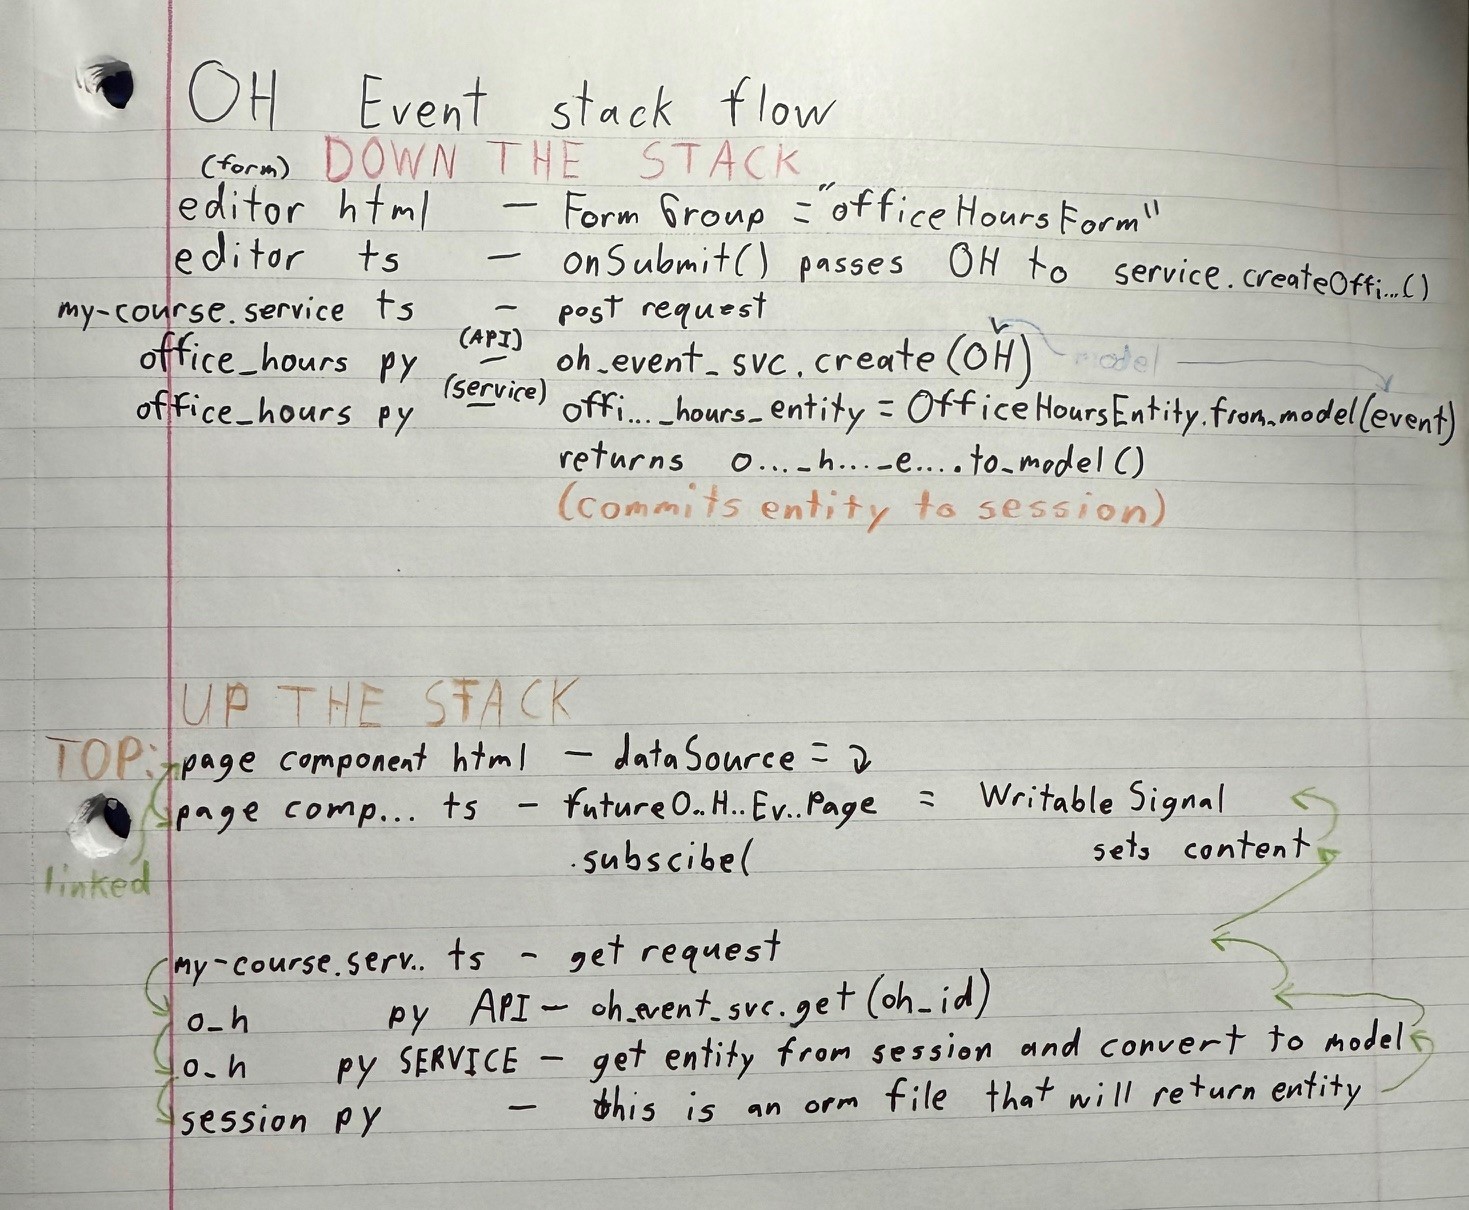 OH Event stack flow
(form) DOWN THE STACK
editor html — Form Group = "officeHoursForm"
editor ts — onSubmit() passes OH to service.createOffi...()
my-course.service ts — post request
office_hours py (API) — oh_event_svc.create(OH) model
office_hours py (service) — offi..._hours_entity = OfficeHoursEntity.from_model(event)
returns o...._h...._e.....to_model()
(commits entity to session)
UP THE STACK
TOP: page component html — dataSource = ↓
page comp... ts — futureO..H..Ev..Page = Writable Signal
.subscibe( sets content
linked
my-course.serv.. ts — get request
o_h py API — oh_event_svc.get(oh_id)
o_h py SERVICE — get entity from session and convert to model
session py — this is an orm file that will return entity